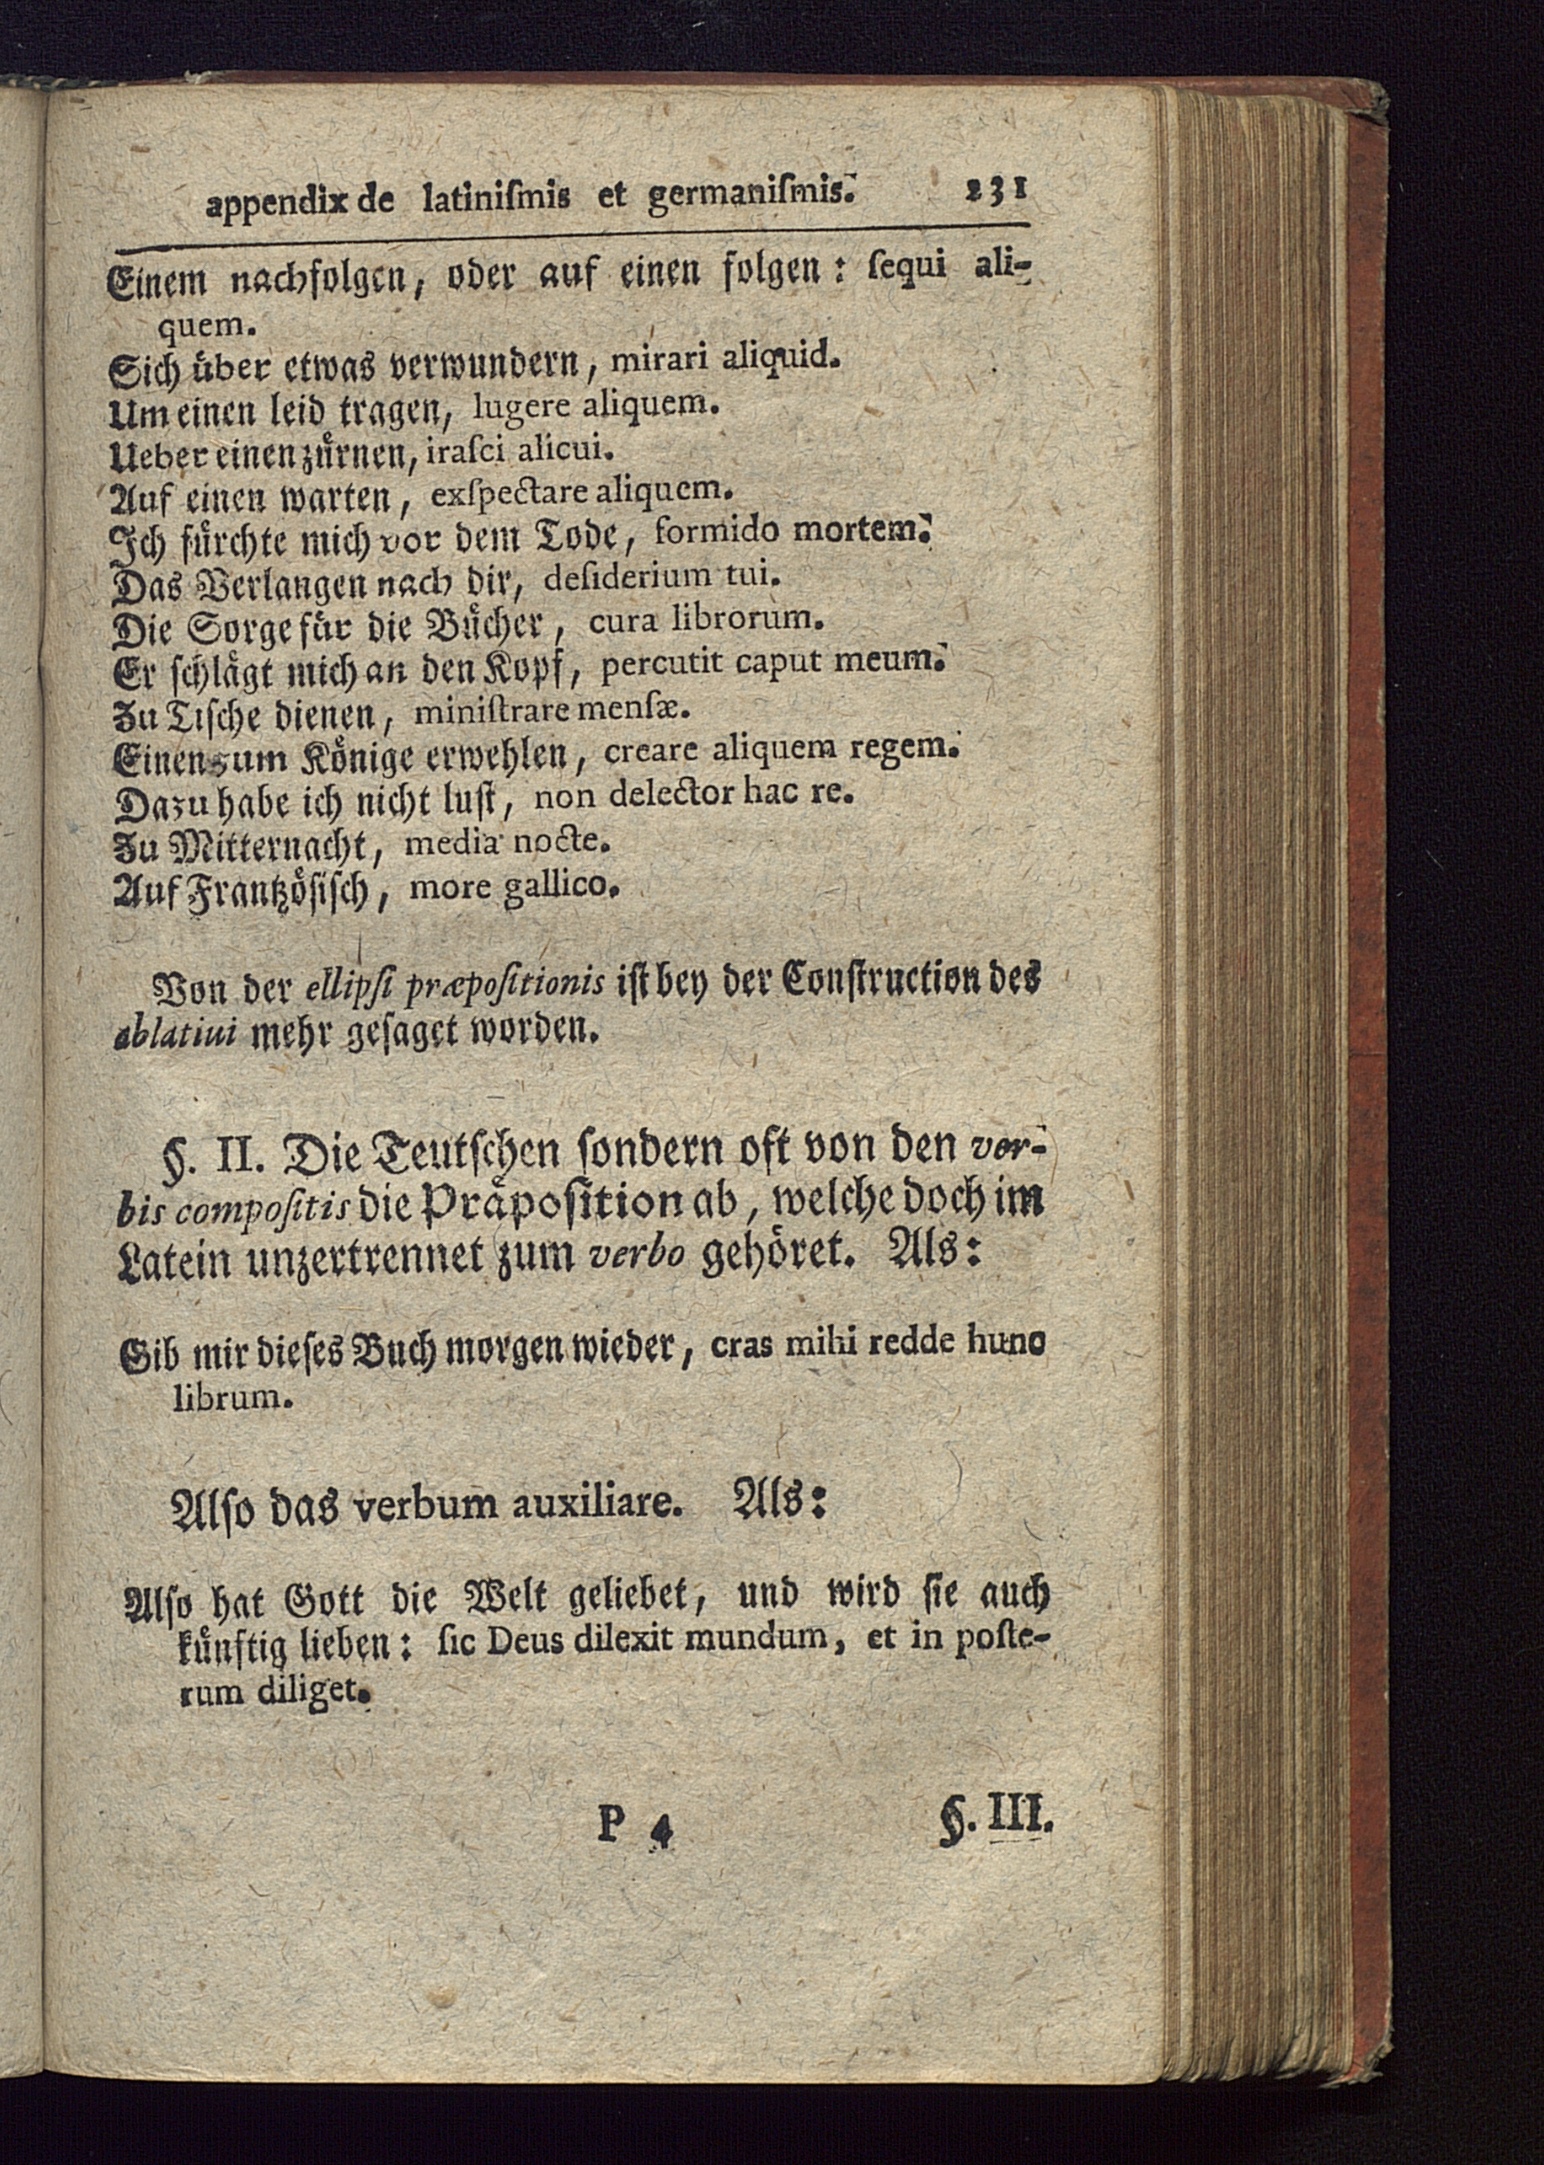 appendix de latiniſmis et germaniſmis. 231
Einem nachfolgen, oder auf einen folgen: ſequi ali-
quem.
Sich über etwas verwundern, mirari aliquid.
Um einen leid tragen, lugere aliquem.
Ueber einen zürnen, iraſci alicui.
Auf einen warten, exſpectare aliquem.
Ich fürchte mich vor dem Tode, formido mortem.
Das Verlangen nach dir, deſiderium tui.
Die Sorge für die Bücher, cura librorum.
Er ſchlägt mich an den Kopf, percutit caput meum.
Zu Tiſche dienen, miniſtrare menſæ.
Einen zum Könige erwehlen, creare aliquem regem.
Dazu habe ich nicht luſt, non delector hac re.
Zu Mitternacht, media nocte.
Auf Frantzöſiſch, more gallico.
Von der ellipſi præpoſitionis iſt bey der Conſtruction des
ablatiui mehr geſaget worden.
§. II. Die Teutſchen ſondern oft von den ver-
bis compoſitis die Präpoſition ab, welche doch im
Latein unzertrennet zum verbo gehöret. Als:
Gib mir dieſes Buch morgen wieder, cras mihi redde hunc
librum.
Alſo das verbum auxiliare. Als:
Alſo hat Gott die Welt geliebet, und wird ſie auch
künftig lieben: ſic Deus dilexit mundum, et in poſte-
rum diliget.
P 4 §. III.